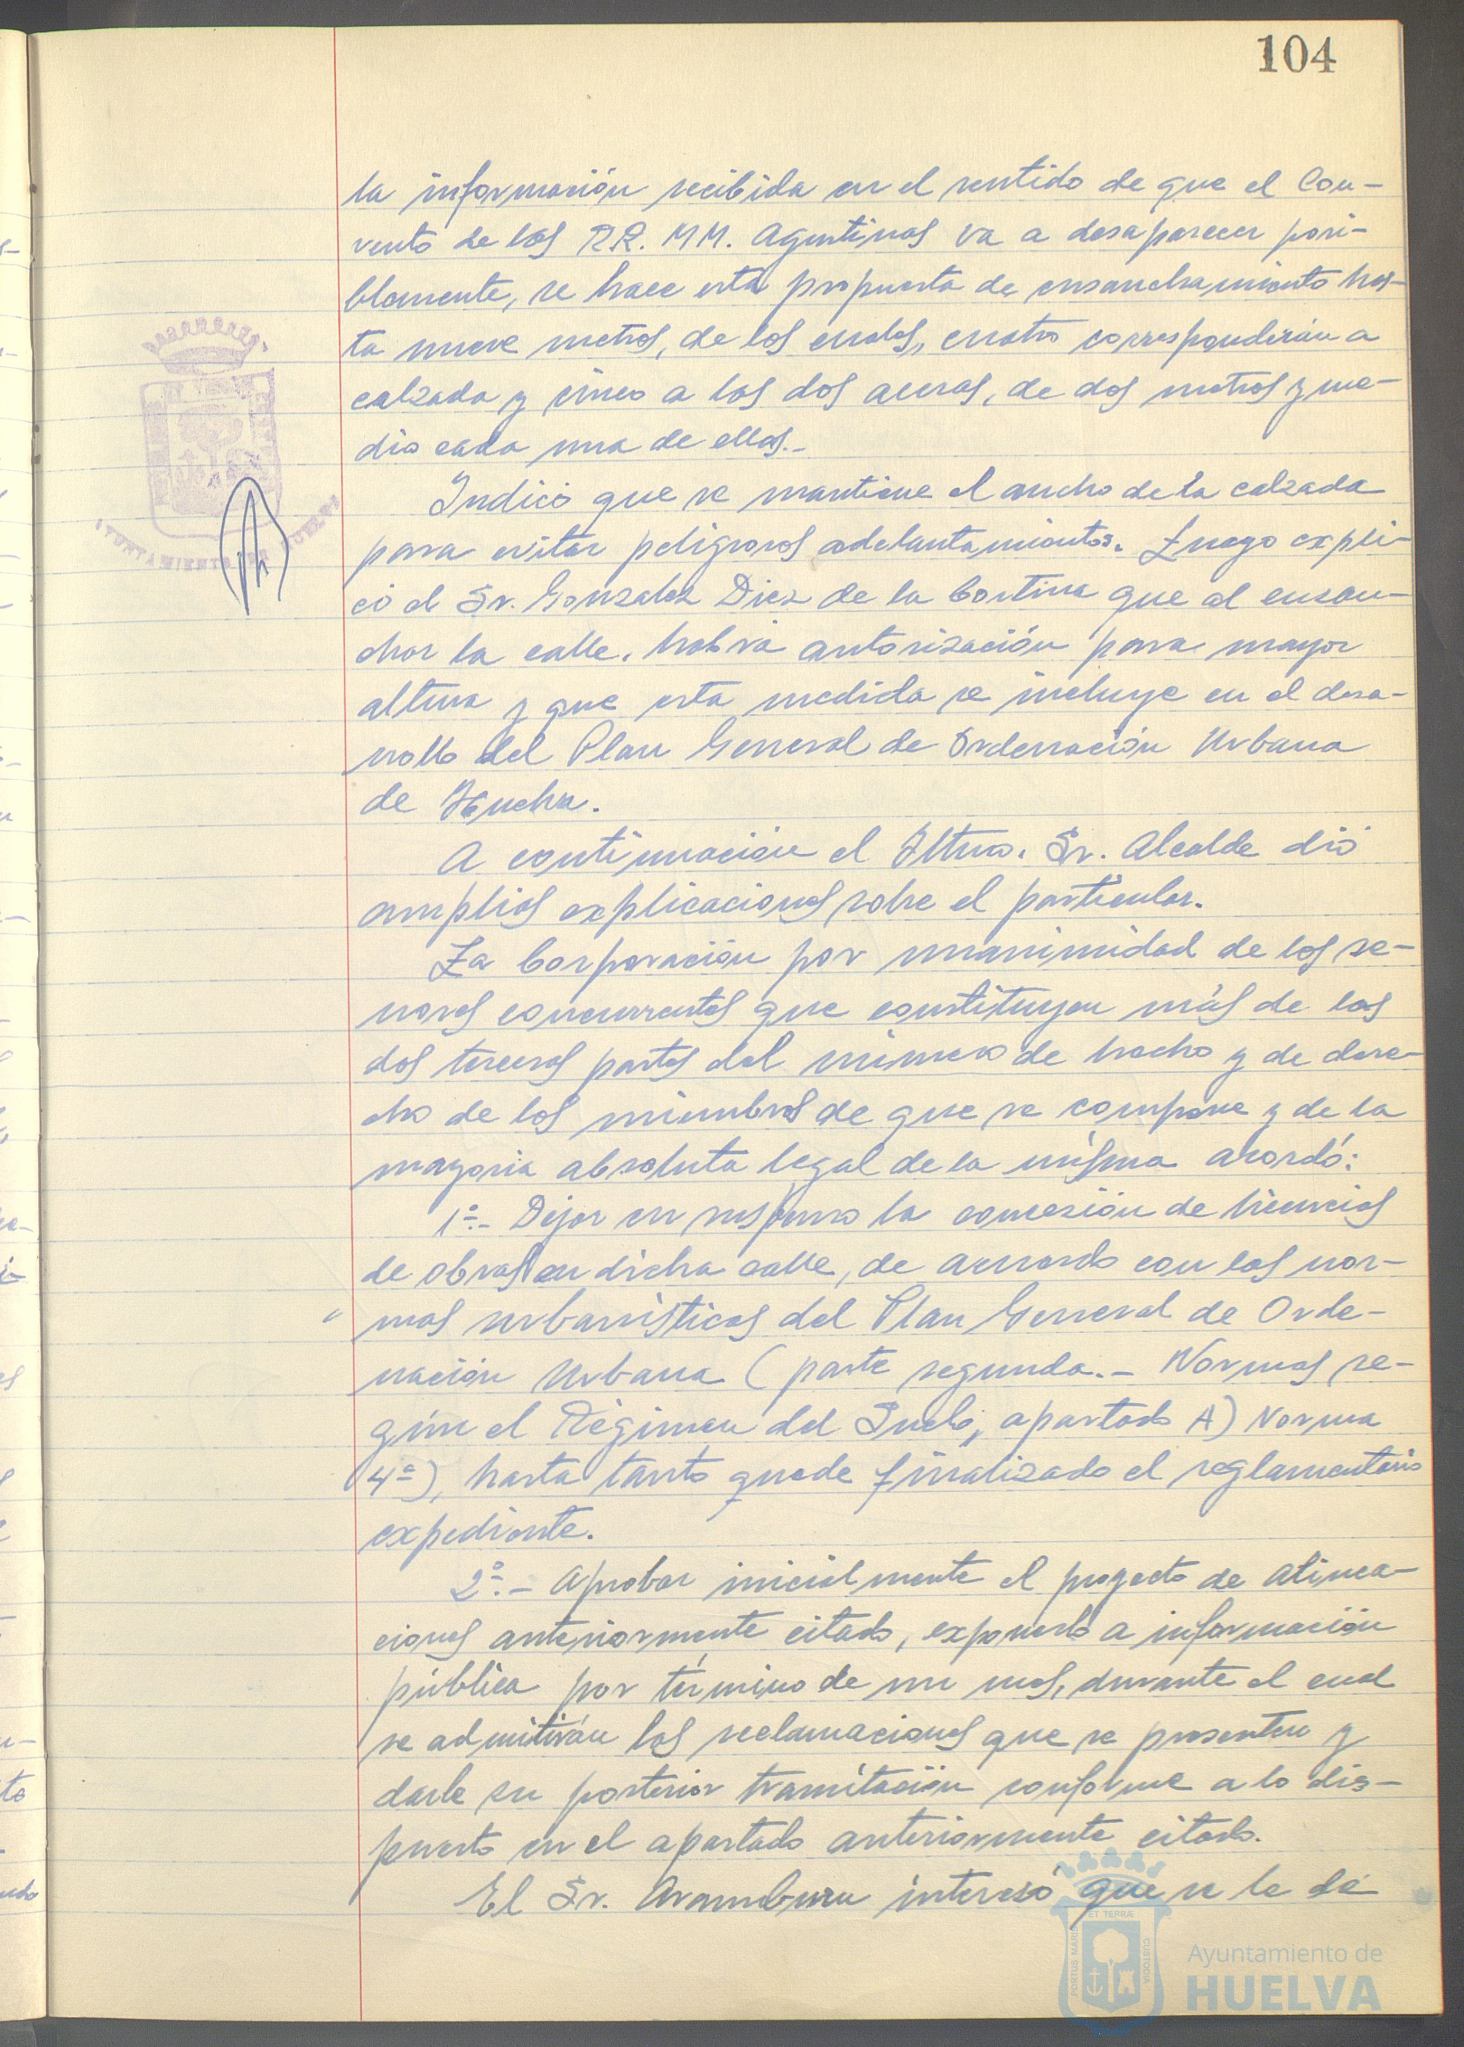 104
la información recibida en el sentido de que el Con-
vento de las RR. MM. Agustinas va a desaparecer posi-
blemente, se hace esta propuesta de ensanchamiento has-
ta nueve metros, de los cuales, cuatro corresponderán a
calzada y cinco a las dos aceras, de dos metros y me-
dio cada una de ellas.-
Indicó que se mantiene el ancho de la calzada
para evitar peligrosos adelantamientos. Luego expli-
có el Sr. Gonzalez Diez de la Cortina que al ensan-
char la calle, habrá autorización para mayor
altura y que esta medida se incluye en el desa-
rrollo del Plan General de Ordenación Urbana
de Huelva.
A continuación el Iltmo. Sr. Alcalde dió
amplias explicaciones sobre el particular.
La Corporación por unanimidad de los se-
ñores concurrentes que constituyen más de las
dos terceras partes del número de hecho y de dere-
cho de los miembros de que se compone y de la
mayoria absoluta legal de la misma acordó:
1º.- Dejar en suspenso la concesión de licencias
de obras en dicha calle, de acuerdo con las nor-
mas urbanísticas del Plan General de Orde-
nación Urbana (parte segunda.- Normas se-
gún el Régimen del Suelo, apartado A) Norma
4ª), hasta tanto quede finalizado el reglamentario
expediente.
2º.- Aprobar inicialmente el proyecto de alinea-
ciones anteriormente citado, exponerlo a información
pública por término de un mes, durante el cual
se admitirán las reclamaciones que se presenten y
darle su posterior tramitación conforme a lo dis-
puesto en el apartado anteriormente citado.
El Sr. Aramburu interesó que se le dé
AYUNTAMIENTO DE HUELVA
PORTUS MARIS ET TERRAE CUSTODIA
Ayuntamiento de
HUELVA